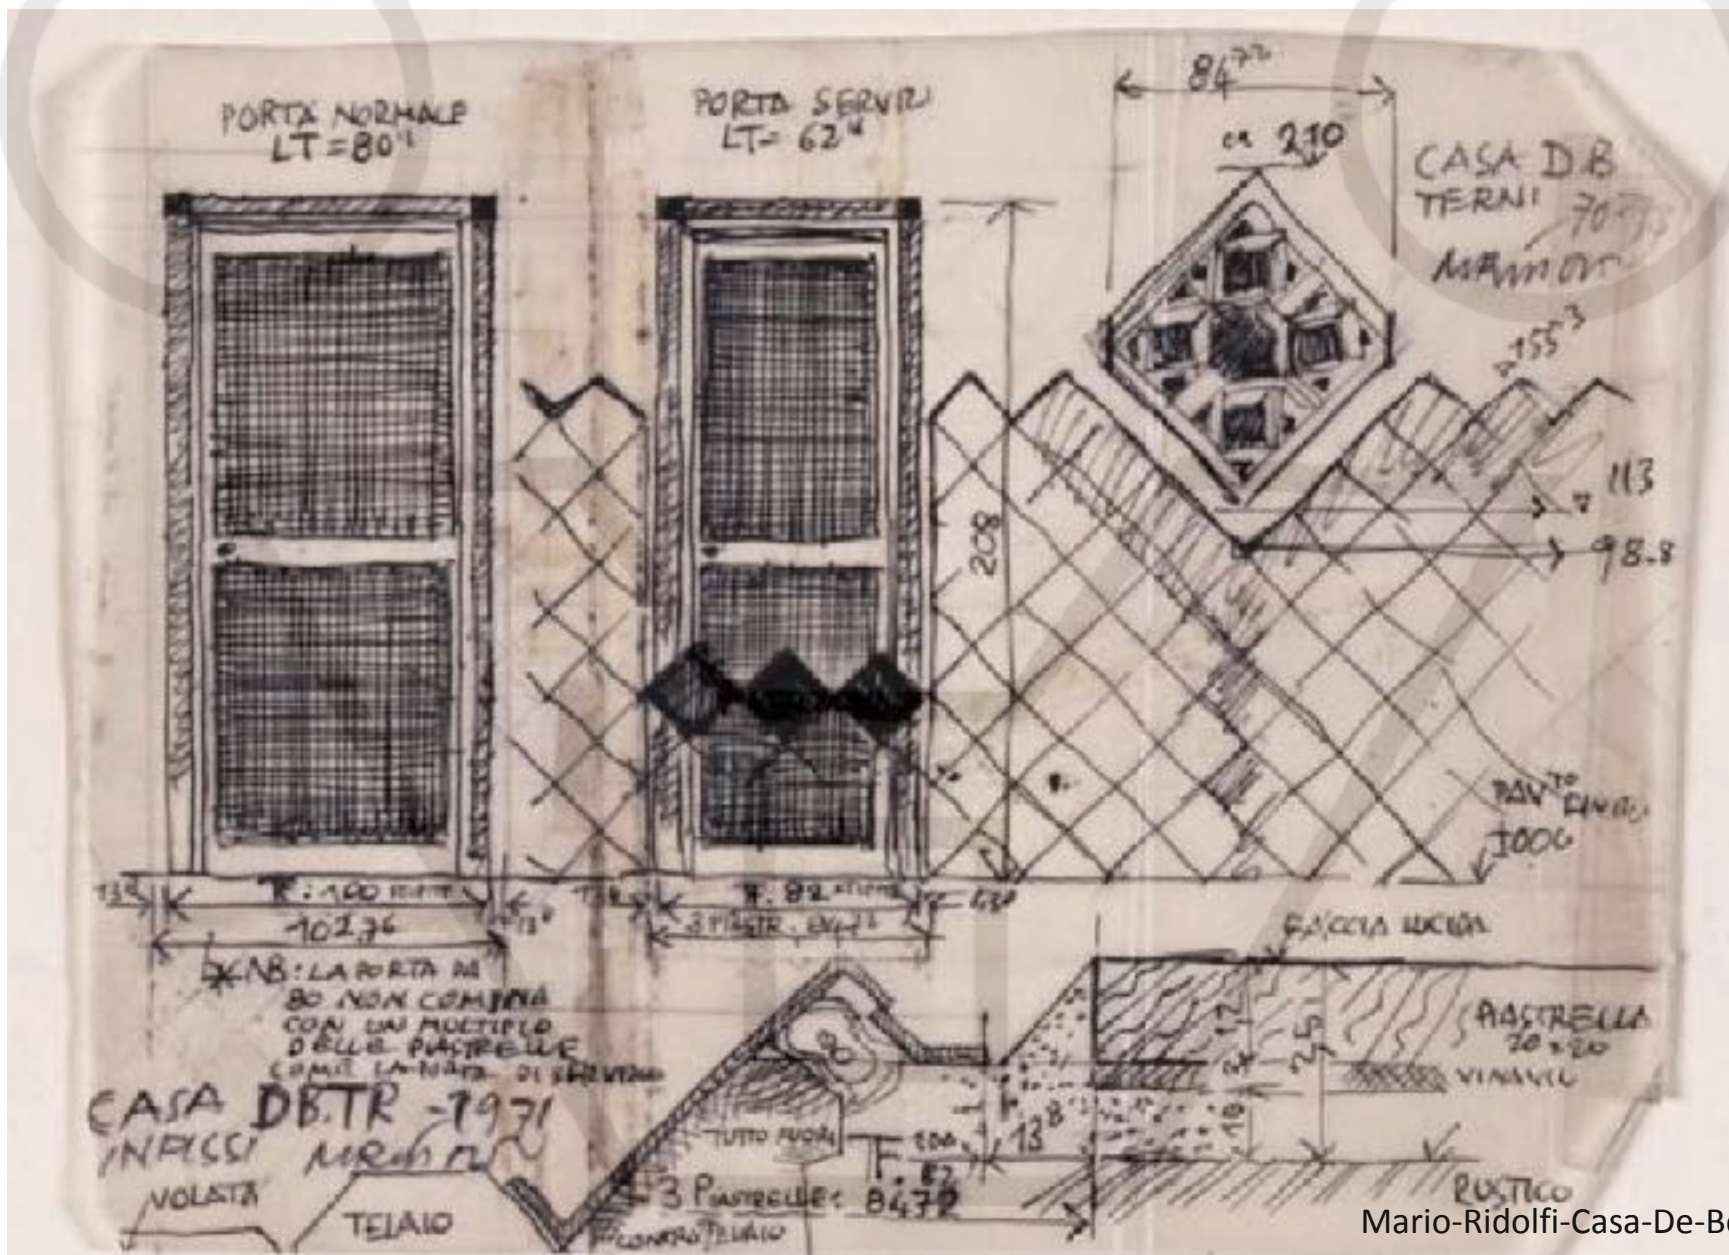 PORTA NORMALE
LT=80
PORTA SERVIZI
LT= 62
84⁷²
210
CASA D.B
TERNI
155³
113
98.8
208
100
F. 82
102,76
3 PIASTR.
NB: LA PORTA DA
80 NON COMBINA
CON UN MULTIPLO
DELLE PIASTRELLE
COME LA PORTA DI
CASA DB.TR -1971
INFISSI
VOLATA
TELAIO
TUTTO FUORI
13⁸
3 PIASTRELLE: 8472
CONTROTELAIO
FACCIA LUCIDA
PIASTRELLA
20x20
VINAVIL
12
10
RUSTICO
Mario-Ridolfi-Casa-De-B